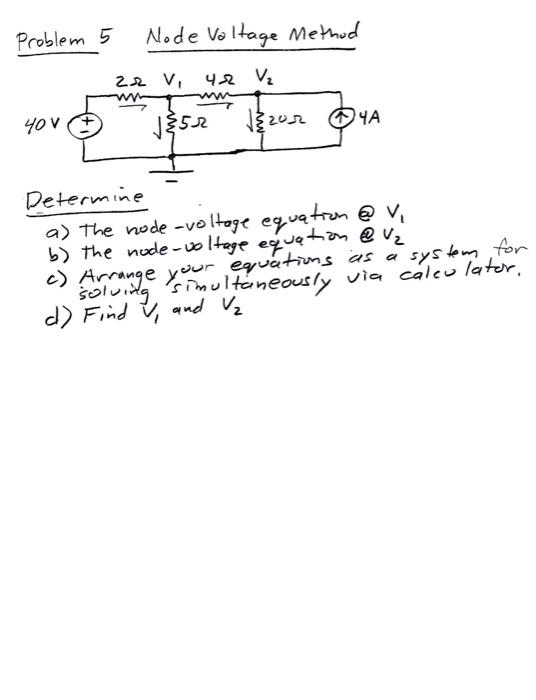 Problem 5 Node Voltage Method
2Ω V₁ 4Ω V₂
40V + - 5Ω 20Ω 4A
Determine
a) The node-voltage equation @ V₁
b) the node-voltage equation @ V₂
c) Arrange your equations as a system for
solving simultaneously via calculator.
d) Find V₁ and V₂